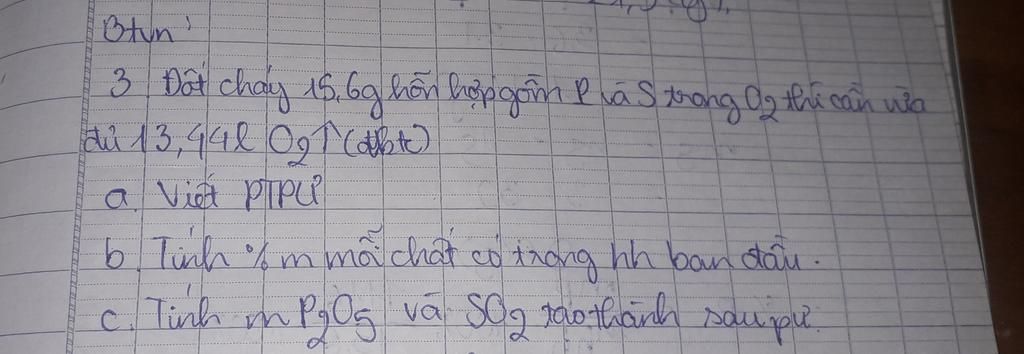 Btvn
3 Đốt cháy 15,6g hỗn hợp gồm P và S trong O2 thì cần vừa
đủ 13,44l O2↑ (đktc)
a. Viết PTPƯ
b Tính % m mỗi chất có trong hh ban đầu.
c. Tính m P2O5 và SO2 tạo thành sau pư.